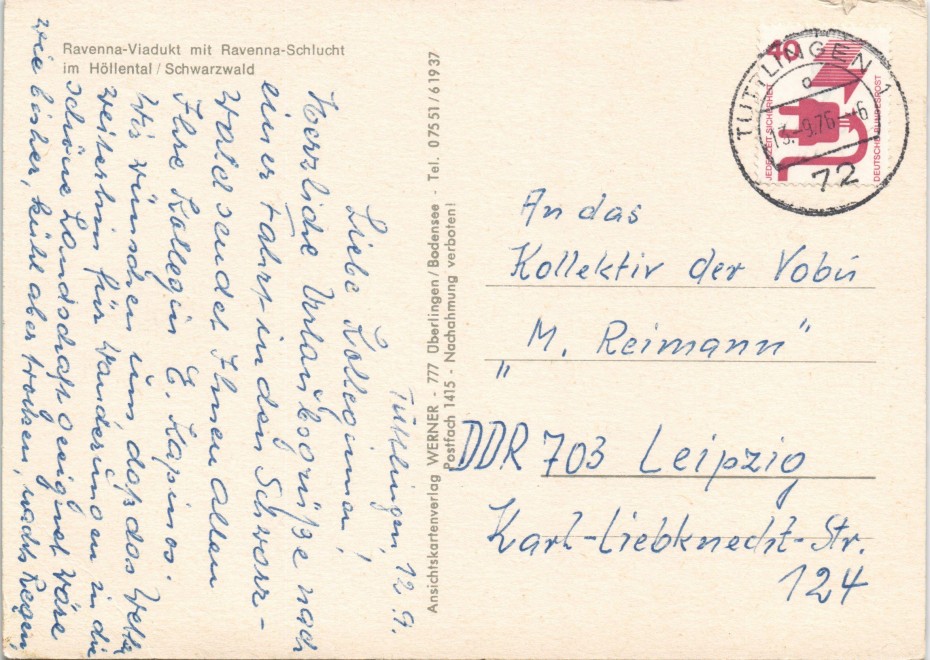 Ravenna-Viadukt mit Ravenna-Schlucht
im Höllental / Schwarzwald
Tuttlingen, 12.9.
Liebe Kolleginnen!
Herzliche Urlaubsgrüße nach
einer Fahrt in den Schwarz-
wald sendet Ihnen allen
Ihre Kollegin E. Kapinos.
Wir wünschen uns, daß das Wetter
weiterhin für Wanderungen in die
schöne Landschaft geeignet wäre
wie bisher, kühl aber trocken, nachts Regen
Ansichtskartenverlag WERNER - 777 Überlingen/Bodensee - Tel. 07551/61937
Postfach 1415 - Nachahmung verboten!
40
JEDERZEIT SICHERHEIT
DEUTSCHE BUNDESPOST
TUTTLINGEN 1
13.-9.76-16
72
An das
Kollektiv der Vobü
"M. Reimann"
DDR 703 Leipzig
Karl-Liebknecht-Str.
124